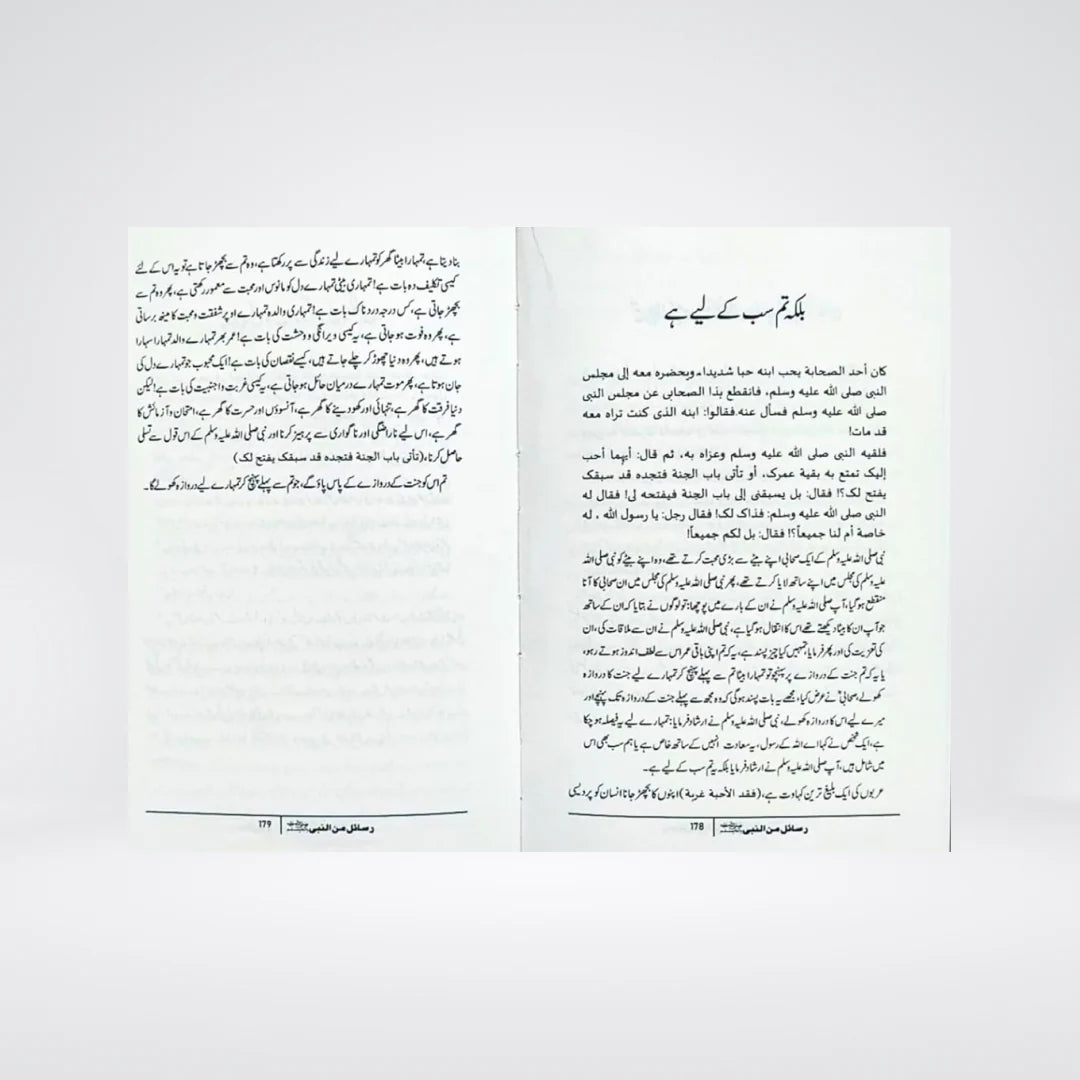 بلکہ تم سب کے لیے ہے
كان أحد الصحابة يحب ابنه حبا شديداء ويحضره معه إلى مجلس
النبی صلى الله علیه وسلم، فانقطع بذا الصحابی عن مجلس النبی
صلى الله علیه وسلم فسأل عنه.فقالوا: ابنه الذی کنت تراه معه
قد مات!
فلقیه النبی صلى الله علیه وسلم وعزاه به، ثم قال: أیهما أحب
إلیک تمتع به بقیة عمرک، أو تأتی باب الجنة فتجده قد سبقک
یفتح لک؟! فقال: بل یسبقنی إلى باب الجنة فیفتحه لی! فقال له
النبی صلى الله علیه وسلم: فذاک لک! فقال رجل: یا رسول الله ، له
خاصة أم لنا جمیعاً؟! فقال: بل لکم جمیعاً!
نبی صلی اللہ علیہ وسلم کے ایک صحابی اپنے بیٹے سے بڑی محبت کرتے تھے، وہ اپنے بیٹے کو نبی صلی اللہ
علیہ وسلم کی مجلس میں اپنے ساتھ لایا کرتے تھے، پھر نبی صلی اللہ علیہ وسلم کی مجلس میں ان صحابی کا آنا
منقطع ہو گیا، آپ صلی اللہ علیہ وسلم نے ان کے بارے میں پوچھا: تو لوگوں نے بتایا کہ ان کے ساتھ
جو آپ ان کا بیٹا دیکھتے تھے اس کا انتقال ہو گیا ہے، نبی صلی اللہ علیہ وسلم نے ان سے ملاقات کی، ان
کی تعزیت کی اور پھر فرمایا: تمہیں کیا چیز پسند ہے، یہ کہ تم اپنی باقی عمر اس سے لطف اندوز ہوتے رہو،
یا یہ کہ تم جنت کے دروازے پر پہنچو تو تمہارا بیٹا تم سے پہلے پہنچ کر تمہارے لیے جنت کا دروازہ
کھولے، صحابیؓ نے عرض کیا، مجھے یہ بات پسند ہوگی کہ وہ مجھ سے پہلے جنت کے دروازہ تک پہنچے اور
میرے لیے اس کا دروازہ کھولے، نبی صلی اللہ علیہ وسلم نے ارشاد فرمایا: تمہارے لیے یہ فیصلہ ہو چکا
ہے، ایک شخص نے کہا اے اللہ کے رسول، یہ سعادت انہیں کے ساتھ خاص ہے یا ہم سب بھی اس
میں شامل ہیں، آپ صلی اللہ علیہ وسلم نے ارشاد فرمایا بلکہ یہ تم سب کے لیے ہے۔
عربوں کی ایک بلیغ ترین کہاوت ہے، (فقد الأحبة غربة) اپنوں کا بچھڑ جانا انسان کو پردیسی
رسائل من النبی ﷺ | 178
بنا دیتا ہے، تمہارا بیٹا گھر کو تمہارے لیے زندگی سے پر رکھتا ہے، وہ تم سے بچھڑ جاتا ہے تو یہ اس کے لئے
کیسی تکلیف دہ بات ہے! تمہاری بیٹی تمہارے دل کو مانوس اور محبت سے معمور رکھتی ہے، پھر وہ تم سے
بچھڑ جاتی ہے، کس درجہ دردناک بات ہے! تمہاری والدہ تمہارے اوپر شفقت و محبت کا مینہ برساتی
ہے، پھر وہ فوت ہو جاتی ہے، یہ کیسی ویرانگی و وحشت کی بات ہے! عمر بھر تمہارے والد تمہارا سہارا
ہوتے ہیں، پھر وہ دنیا چھوڑ کر چلے جاتے ہیں، کیسے نقصان کی بات ہے! ایک محبوب جو تمہارے دل کی
جان ہوتا ہے، پھر موت تمہارے درمیان حائل ہو جاتی ہے، یہ کیسی غربت و اجنبیت کی بات ہے! لیکن
دنیا فرقت کا گھر ہے، تنہائی اور کھو دینے کا گھر ہے، آنسوؤں اور حسرت کا گھر ہے، امتحان و آزمائش کا
گھر ہے، اس لیے ناراضگی اور ناگواری سے پرہیز کرنا اور نبی صلی اللہ علیہ وسلم کے اس قول سے تسلی
حاصل کرنا، (تأتی باب الجنة فتجده قد سبقک یفتح لک)
تم اس کو جنت کے دروازے کے پاس پاؤ گے، جو تم سے پہلے پہنچ کر تمہارے لیے دروازہ کھولے گا۔
رسائل من النبی ﷺ | 179